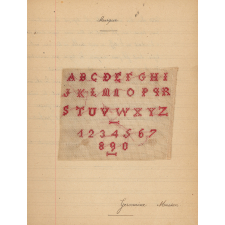 Marques
ABCDEFGHI
JKLMNOPQR
STUVWXYZ
1234567
890
Germaine